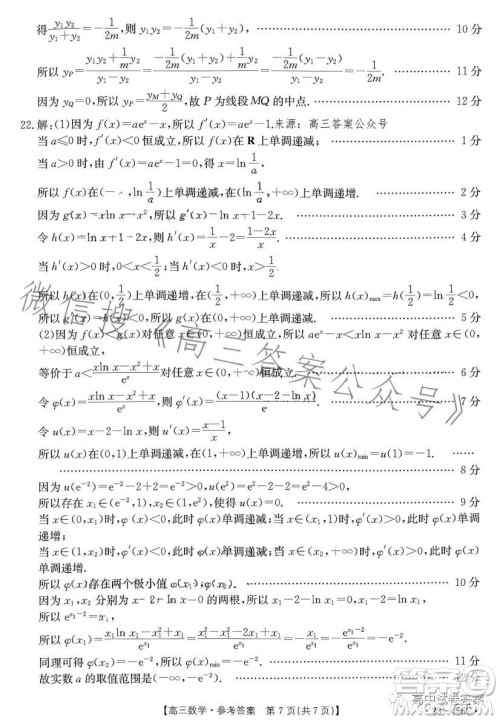 得y₁y₂/(y₁+y₂)=-1/(2m),则 y₁y₂=-1/(2m)(y₁+y₂), 10 分
11 分
因为 y_Q=0,所以 y_P=(y_M+y_Q)/2,故 P 为线段MQ 的中点. 12 分
22.解:(1)因为 f(x)=aeˣ-x,所以 f′(x)=aeˣ-1.来源:高三答案公众号
当 a≤0 时,f′(x)<0 恒成立,所以 f(x)在 R 上单调递减; 1 分
当 a>0 时,由 f′(x)=aeˣ-1=0,得 x=ln 1/a.
上单调递减,在(ln 1/a,+∞)上单调递增. 2 分
因为 g(x)=xln x-x²,所以 g′(x)=ln x+1-2x. 3 分
令 h(x)=ln x+1-2x,则 h′(x)=1/x-2=(1-2x)/x. 4 分
当 h′(x)>0 时,0<x<1/2;当 h′(x)<0 时,x>1/2,
所以 h(x)在(0,1/2)上单调递增,在(1/2,+∞)上单调递减,所以 h(x)max=h(1/2)=ln 1/2<0,
上单调递减. 5 分
(2)因为 f(x)<g(x)对任意 x∈(0,+∞)恒成立,所以 aeˣ-x<xln x-x² 对任意 x∈(0,+∞)恒成立,
等价于 a<(xln x-x²+x)/eˣ 对任意 x∈(0,+∞)恒成立. 6 分
令 φ(x)=(xln x-x²+x)/eˣ,则 φ′(x)=(x-1)(x-2-ln x)/eˣ. 7 分
令 u(x)=x-2-ln x,则 u′(x)=(x-1)/x,
所以 u(x)在(0,1)上单调递减,在(1,+∞)上单调递增,所以 u(x)min=u(1)=-1.
8 分
因为 u(e⁻²)=e⁻²-2+2=e⁻²>0,u(e²)=e²-2-2=e²-4>0,
所以存在 x₁∈(e⁻²,1),x₂∈(1,e²),使得 u(x)=0. 9 分
当 x∈(0,x₁)时,φ′(x)<0,此时 φ(x)单调递减;当 x∈(x₁,1)时,φ′(x)>0,此时 φ(x)单调
递增;
当 x∈(1,x₂)时,φ′(x)<0,此时 φ(x)单调递减;当 x∈(x₂,+∞)时,φ′(x)>0,此时 φ(x)
单调递增.
所以 φ(x)存在两个极小值 φ(x₁),φ(x₂). 10 分
因为 x₁,x₂ 分别为 x-2=ln x 的两根,所以 x₁-2=ln x₁,
所以 e^(x₁-2)=x₁,
所以 φ(x₁)=(x₁ln x₁-x₁²+x₁)/e^(x₁)=(x₁²-2x₁-x₁²+x₁)/e^(x₁)=-x₁/e^(x₁)=-e^(x₁-2)/e^(x₁)=-1/e²,
同理可得 φ(x₂)=-1/e². 11 分
故实数 a 的取值范围是(-∞,-1/e²). 12 分
【高三数学·参考答案 第 7 页(共 7 页)】
微信搜《高三答案公众号》
高中试卷答案